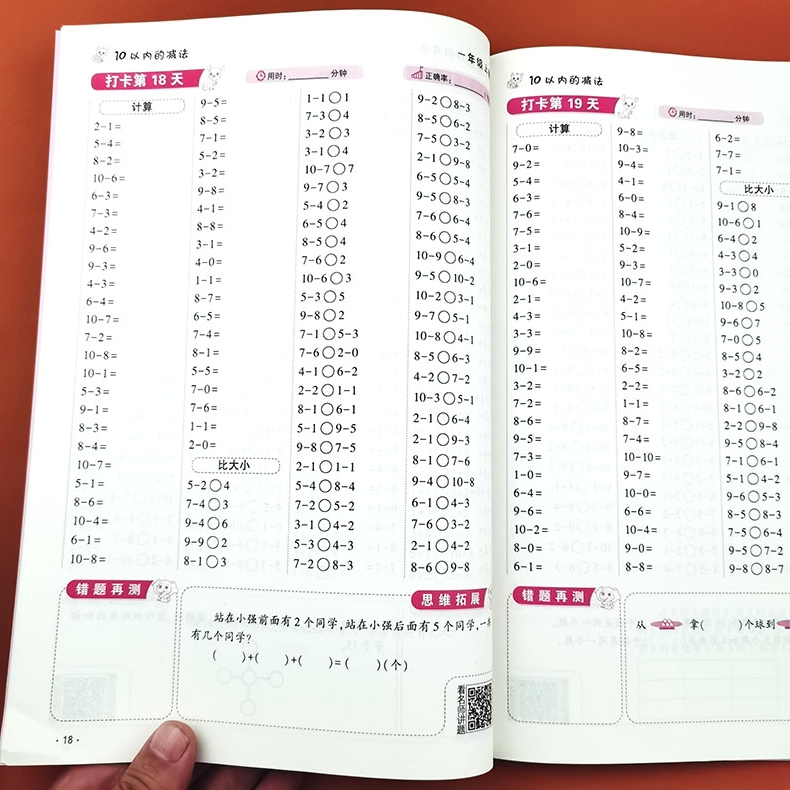 10 以内的减法
一年级上
打卡第 18 天
用时: 分钟
正确率:
计算
2-1=
5-4=
8-2=
10-6=
6-3=
7-3=
4-2=
9-6=
9-3=
4-3=
6-4=
10-7=
7-2=
10-8=
10-1=
5-3=
9-1=
8-3=
8-4=
10-7=
5-1=
8-6=
10-4=
6-1=
10-8=
9-5=
8-5=
7-1=
5-2=
3-2=
9-8=
4-1=
8-8=
3-1=
4-0=
1-1=
8-7=
6-5=
7-4=
8-1=
5-5=
7-0=
7-6=
1-1=
2-0=
比大小
5-2○4
7-4○3
9-4○6
9-9○2
8-1○3
1-1○1
7-3○4
3-2○3
3-1○4
10-7○7
9-7○3
5-4○2
6-5○4
8-5○4
7-6○2
10-6○3
5-3○5
9-8○2
7-1○5-3
7-6○2-0
4-1○6-2
2-2○1-1
8-1○6-1
5-1○9-5
9-8○7-5
2-1○1-1
5-4○8-4
7-2○5-2
3-1○4-2
5-3○4-3
7-2○8-3
9-2○8-3
8-5○6-2
7-5○3-2
2-1○9-8
6-5○5-4
8-5○9-3
7-6○6-4
8-6○5-4
10-9○6-4
9-5○10-2
10-2○3-1
9-7○5-1
10-8○4-1
8-5○6-3
4-2○7-2
10-3○5-1
2-1○6-4
2-1○9-3
8-1○7-6
9-4○10-8
6-1○4-3
7-6○3-2
2-1○4-2
8-6○9-8
错题再测
思维拓展
站在小强前面有 2 个同学,站在小强后面有 5 个同学,一共
有几个同学?
( )+( )+( )=( )(个)
看名师讲题
· 18 ·
10 以内的减法
打卡第 19 天
用时: 分钟
计算
7-0=
9-2=
5-4=
6-3=
7-6=
7-5=
3-1=
2-0=
10-6=
2-1=
4-3=
3-3=
9-9=
10-1=
3-2=
7-2=
8-6=
9-5=
7-3=
1-0=
6-4=
9-6=
10-2=
8-0=
6-1=
9-8=
10-3=
9-4=
4-1=
6-0=
8-4=
10-9=
5-2=
9-3=
10-7=
4-2=
5-1=
10-8=
8-2=
6-5=
2-2=
1-1=
8-7=
7-4=
10-10=
9-7=
10-0=
6-6=
10-4=
9-0=
8-8=
6-2=
7-7=
7-1=
比大小
9-1○8
10-6○1
6-4○2
4-3○4
3-3○0
9-3○2
10-8○5
9-6○7
7-0○5
8-5○4
3-2○2
8-6○6-2
8-1○6-1
2-2○9-8
9-5○8-4
7-1○6-1
5-1○4-2
9-6○5-3
8-5○8-3
7-5○6-4
9-5○7-2
9-8○8-7
错题再测
从 拿( )个球到